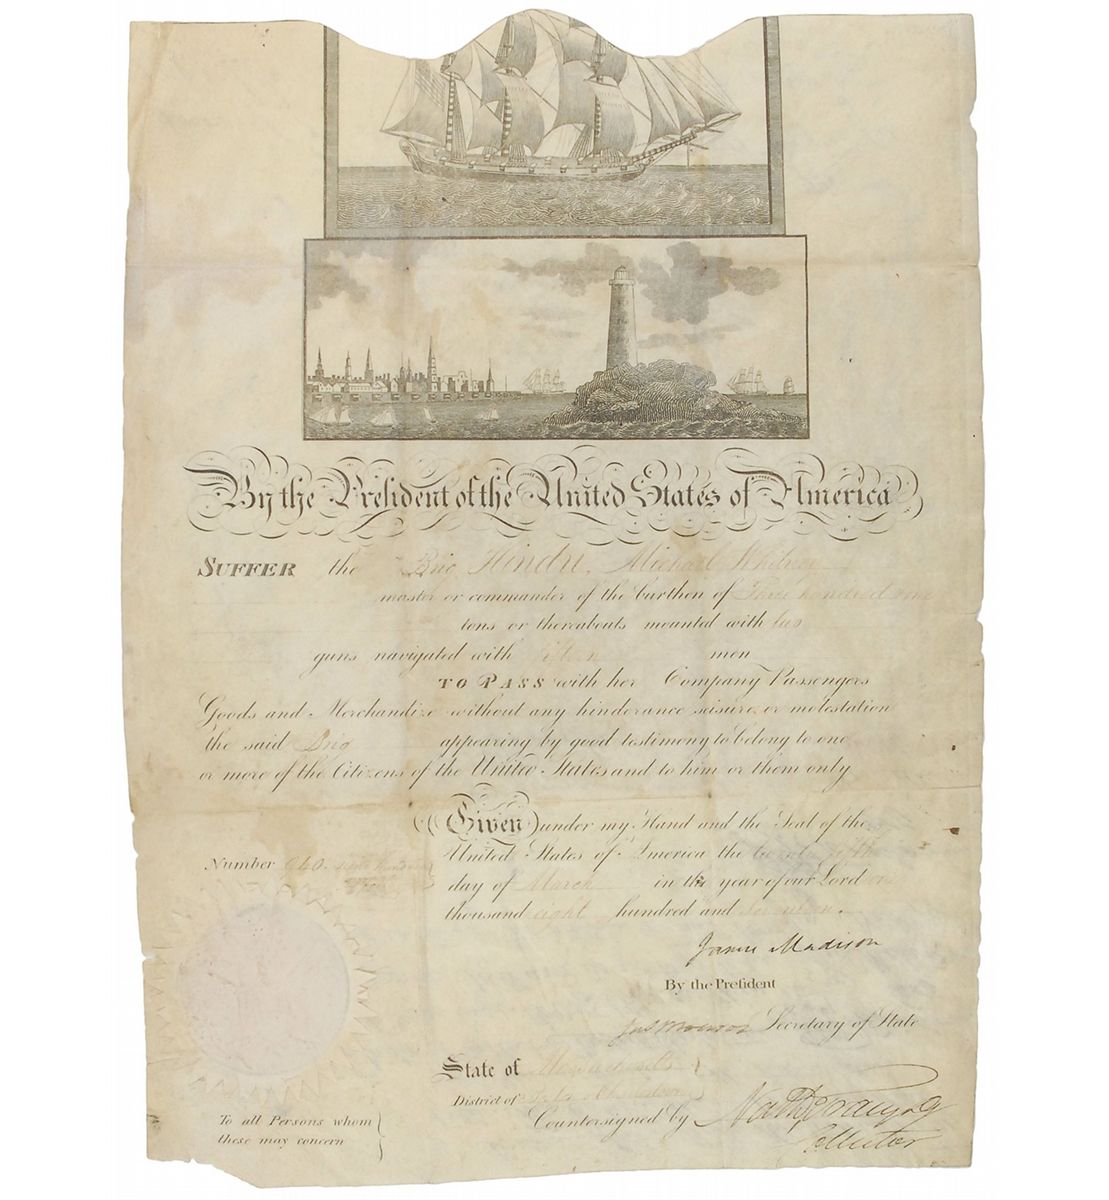 By the President of the United States of America
SUFFER the Brig Hindu, Michael Whitney
master or commander of the burthen of Three hundred nine
tons or thereabouts mounted with two
guns navigated with fifteen men
TO PASS with her Company Passengers
Goods and Merchandize without any hinderance seisure or molestation
the said Brig appearing by good testimony to belong to one
or more of the Citizens of the United States and to him or them only
Given under my Hand and the Seal of the
United States of America the twenty fifth
day of March in the year of our Lord one
thousand eight hundred and seventeen.
Number 960. nine hundred
James Madison
By the Preſident
Jas Monroe Secretary of State
State of Massachusetts
District of
Countersigned by
Collector
To all Persons whom
these may concern